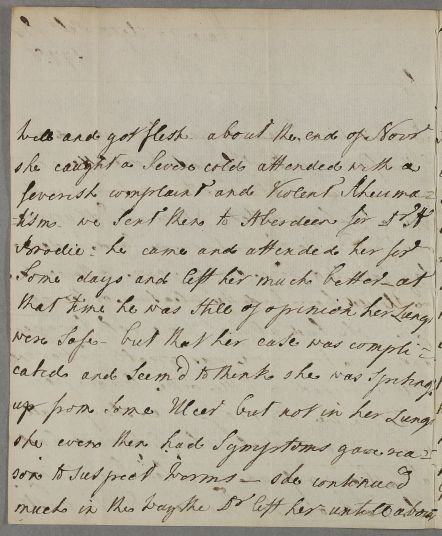 well and got flesh about the end of Novr
she caught a Severe cold attended with a
feverish complaint and Violent Rheuma=
=tism we Sent then to Aberdeen for Dr
Brodie: he came and attended her for
Some days and left her much better - at
that time he was still of opinion her Lungs
were Safe - but that her case was compli=
cated and Seem'd to think she was Spitting
up from Some Ulcer but not in her Lungs
she even then had Symptoms gave rea=
son to suspect Worms - she continued
much in the way the Dr left her - untill about